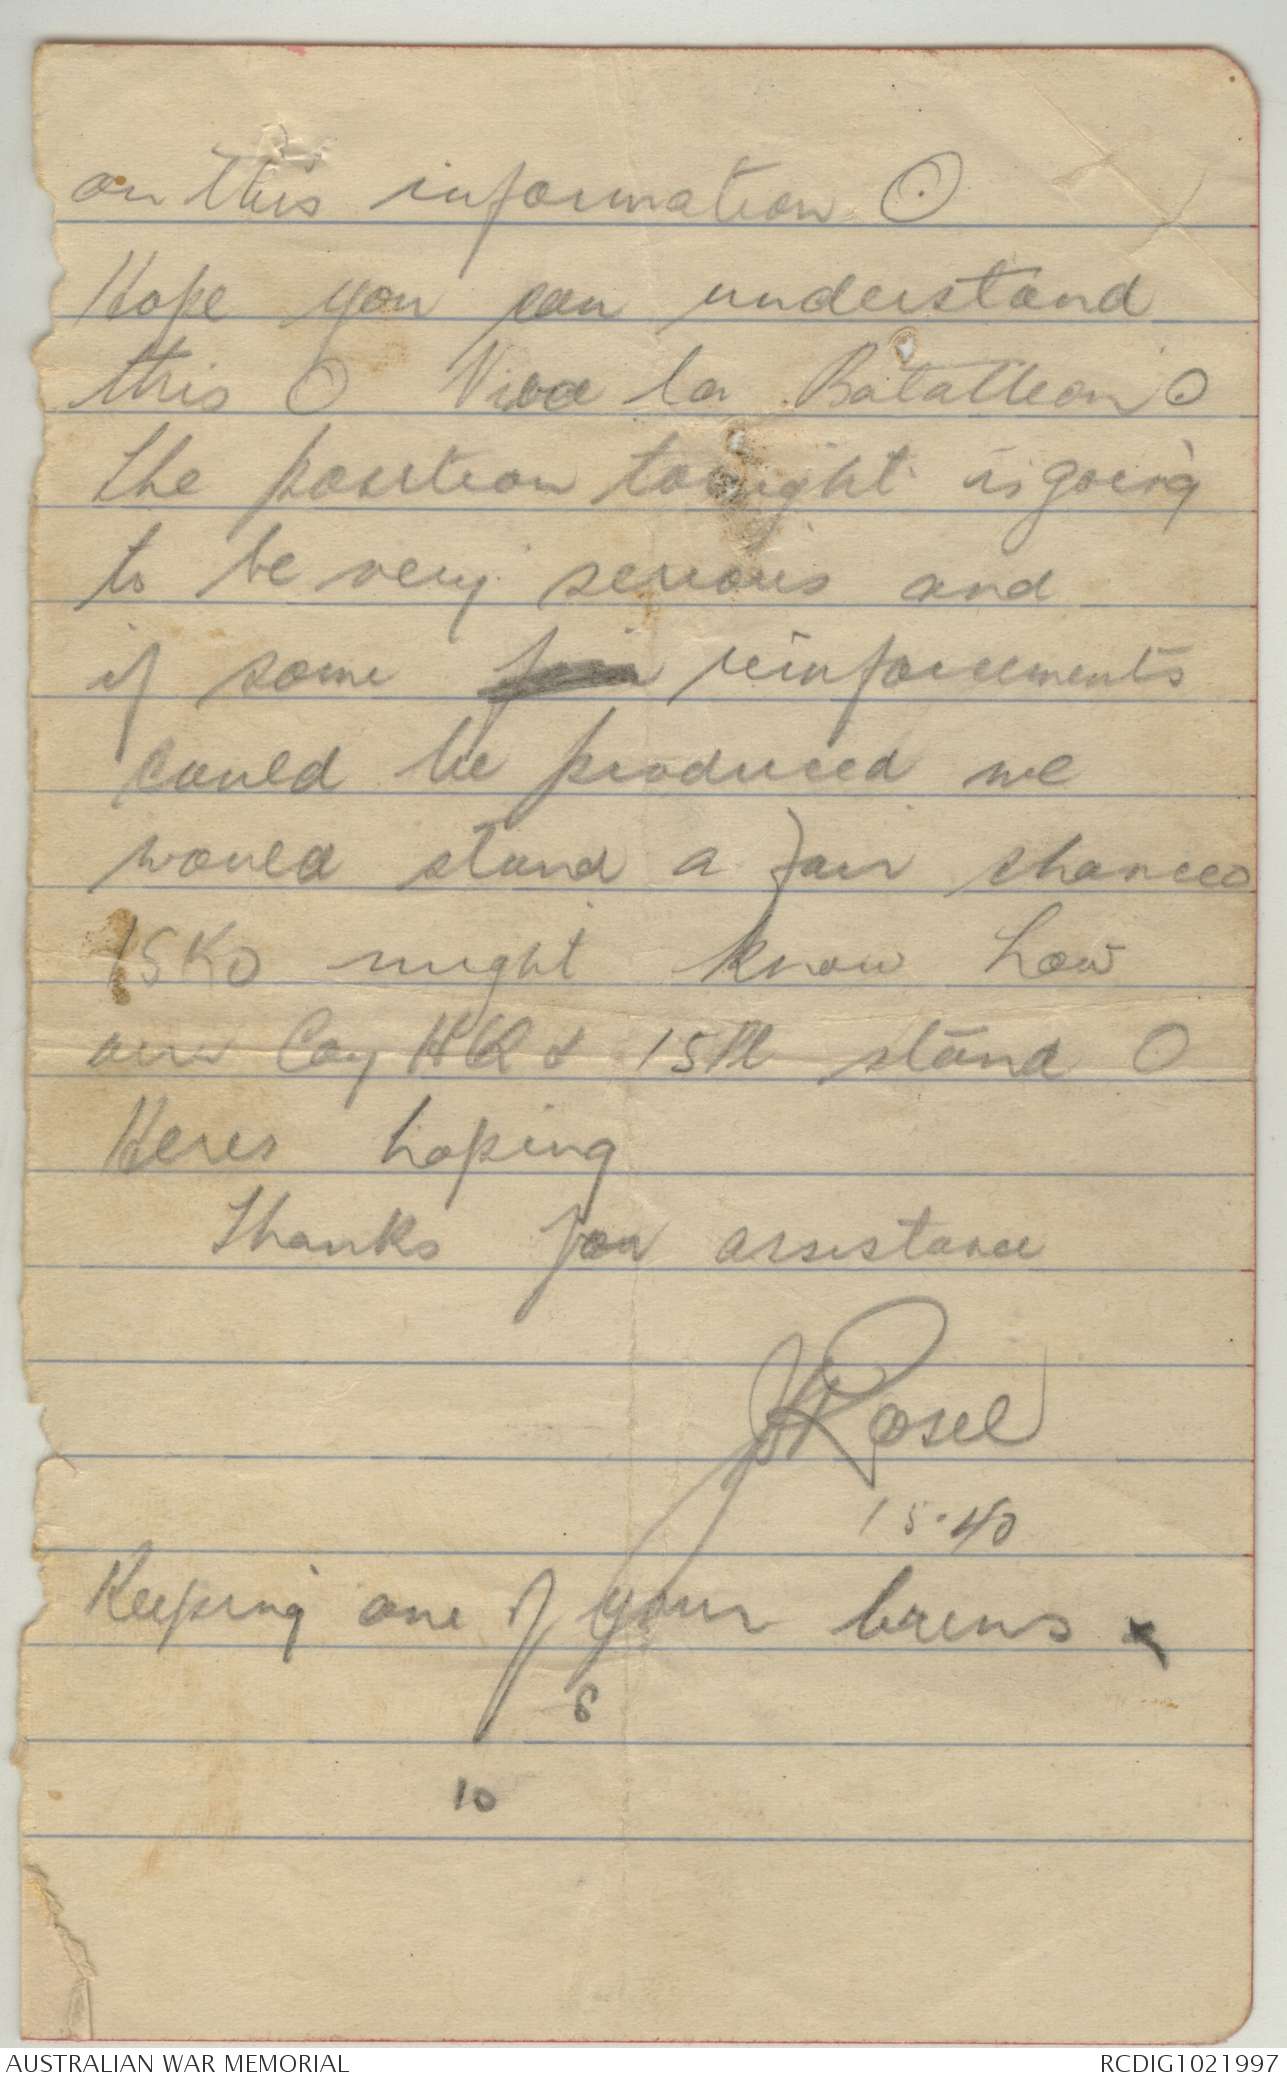 on this information ⊙
Hope you can understand
this O Viva la Batalleon ⊙
The position tonight is going
to be very serious and
if some reinforcements
could be produced we
would stand a fair chance O
might know how
our Coy HQ & 15 Pl stand O
Heres hoping
Thanks for assistance
Rosel
15.40
Keeping one of your brens x
8
10
AUSTRALIAN WAR MEMORIAL
RCDIG1021997